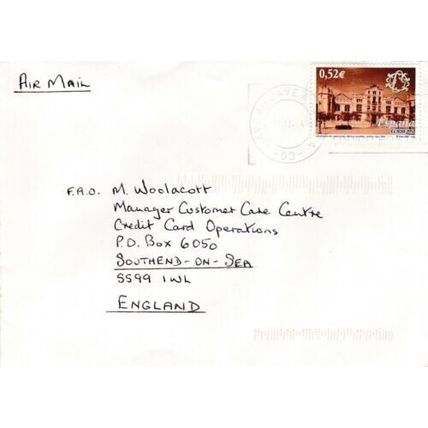 Air Mail
0,52€
España
F.A.O. M. Woolacott
Manager Customer Care Centre
Credit Card Operations
P.O. Box 6050
SOUTHEND-ON-SEA
SS99 1WL
ENGLAND